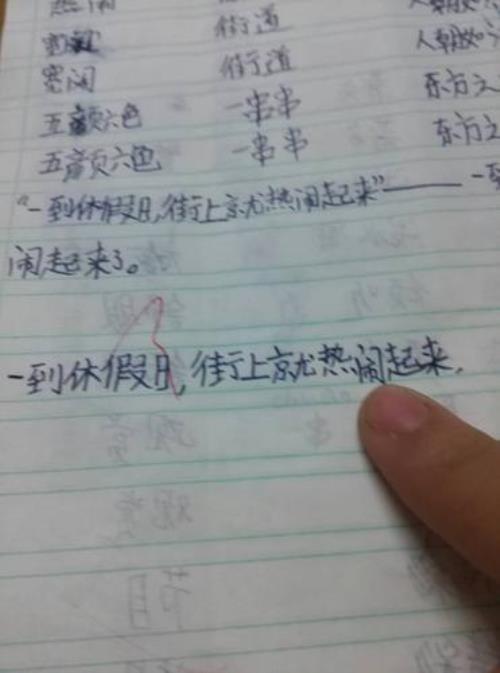 热闹 街道 人朝如
宽阔 街道 人朝如
五颜六色 一串串 东方之
五颜六色 一串串 东方
“一到休假日,街上就热闹起来”—— 一到
闹起来了。
一到休假日,街上就热闹起来.
节目